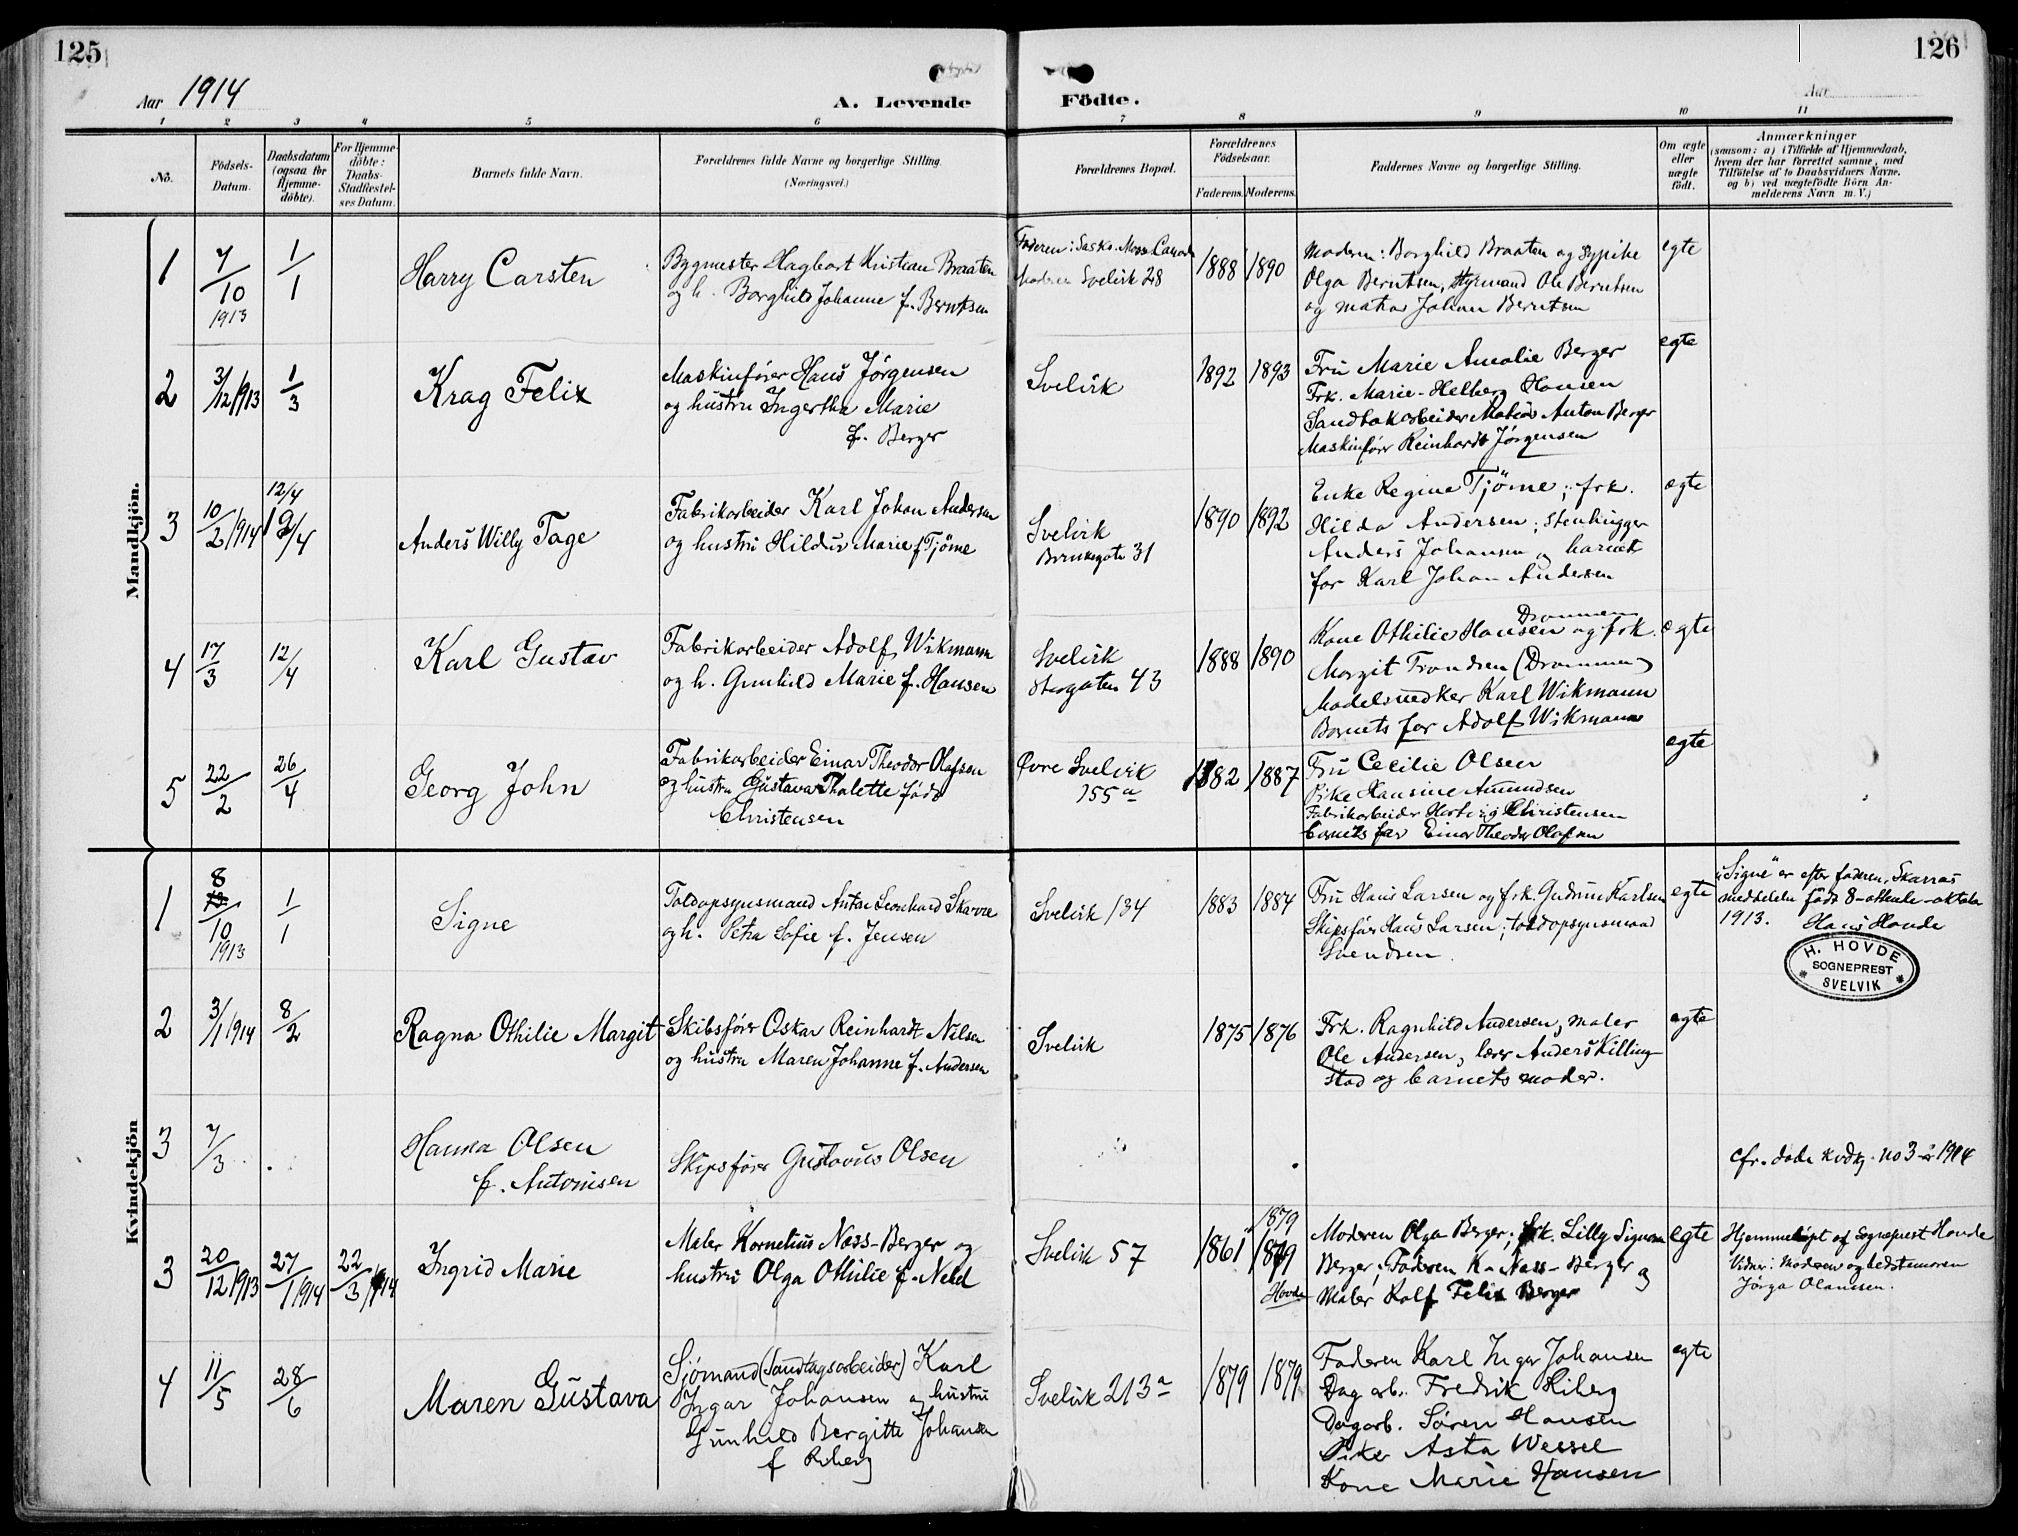 125
126
Aar 1914
A. Levende Födte.
Aar
1 2 3 4 5 6 7 8 9 10 11
No.
Födsels-
Datum.
Daabsdatum
(ogsaa for
Hjemme-
döbte).
For Hjemme-
döbte:
Daabs-
Stadfæstel-
ses Datum.
Barnets fulde Navn.
Forældrenes fulde Navne og borgerlige Stilling.
(Næringsvei.)
Forældrenes Bopæl.
Forældrenes
Födselsaar.
Faderens. Moderens.
Faddernes Navne og borgerlige Stilling.
Om ægte
eller
uægte
födt.
Anmærkninger
(saasom: a) i Tilfælde af Hjemmedaab,
hvem der har forrettet samme, med
Tilföielse af to Daabsvidners Navne,
og b) ved uægtefödte Börn An-
melderens Navn m. V.)
Mandkjön.
1
7/10
1913
1/1
Harry Carsten
Bygmester Hagbart Kristian Braaten
og h. Borghild Johanne f. Berntsen
Faderen: Sask. Canada
Moderen Svelvik 28
1888
1890
Moderen: Borghild Braaten og pike
Olga Berntsen, Styrmand Ole Berntsen
og matros Johan Berntsen
egte
2
3/12 1913
1/3
Krag Felix
Maskinfører Hans Jørgensen
og hustru Ingertha Marie
f. Berger
Svelvik
1892
1893
Fru Marie Amalie Berger
Frk. Marie Helberg Hansen
Sandtakarbeider Matias Anton Berger
Maskinfører Reinhardt Jørgensen
egte
3
10/2 1914
12/4
12/4
Anders Willy Tage
Fabrikarbeider Karl Johan Andersen
og hustru Hildur Marie f Tjöme
Svelvik
31
1890
1892
Enke Regine Tjöme; frk.
Hilda Andersen; stenhugger
Anders Johansen og barnets
far Karl Johan Andersen
ægte
4
17/3
12/4
Karl Gustav
Fabrikarbeider Adolf Wikmann
og h. Gunhild Marie f. Hansen
Svelvik
Storgaten 43
1888
1890
Drammen
Kone Othilie Hansen og frk.
Margit Trondsen (Drammen)
Modelsnedker Karl Wikmann
Barnets far Adolf Wikmann
egte
5
22/2
26/4
Georg John
Fabrikarbeider Einar Theodor Olafsen
og hustru Gustava Thalette født
Christensen
Øvre Svelvik
155 a
1882
1887
Fru Cecilie Olsen
Pike Hansine Amundsen
Fabrikarbeider Hartvig Christensen
barnets far Einar Theodor Olafsen
egte
Kvindekjön
1
8
10
1913
1/1
Signe
Toldopsynsmand Anton Leonhard Skarre
og h. Petra Sofie f. Jensen
Svelvik 134
1883
1884
Fru Hans Larsen og frk. Gudrun Karlsen
Skipsfør Hans Larsen; toldopsynsmand
Svendsen.
egte
"Signe" er efter faderen, Skarres
meddelelse født 8-ottende-oktober
1913. Hans Hovde
H. HOVDE
SOGNEPREST
SVELVIK
2
3/1 1914
8/2
Ragna Othilie Margit
Skibsfører Oskar Reinhardt Nilsen
og hustru Maren Johanne f. Andersen
Svelvik
1875
1876
Frk. Ragnhild Andersen, maler
Ole Andersen, lærer Anders Killing-
stad og barnets moder.
egte
3
7/3
Hanna Olsen
f. Antonisen
Skipsfører Gustavus Olsen
cfr. døde kvdkj. no 3 - 1914
3
20/12 1913
27/1 1914
22/3 1914
Ingrid Marie
Maler Kornelius Næss-Berger og
hustru Olga Othilie f. Neld
Svelvik 57
1861
1879
1879
Hovde
Moderen Olga Berger; frk. Lilly Signora
Berger; Faderen K. Næss-Berger og
Maler Rolf Felix Berger
egte
Hjemmedøpt af Sogneprest Hovde
Vidner: Moderen og bedstemoren
Jørga Olaussen.
4
11/5
28/6
Maren Gustava
Sjømand (Sandtagsarbeider) Karl
Ingar Johansen og hustru
Gunhild Bergitte Johansen
f
Svelvik 213 a
1879
1879
Faderen Karl Ingar Johansen
Dagarb. Fredrik Hiberg
Dagarb. Søren Hansen
Pike Asta Wessel
Kone Marie Hansen
egte